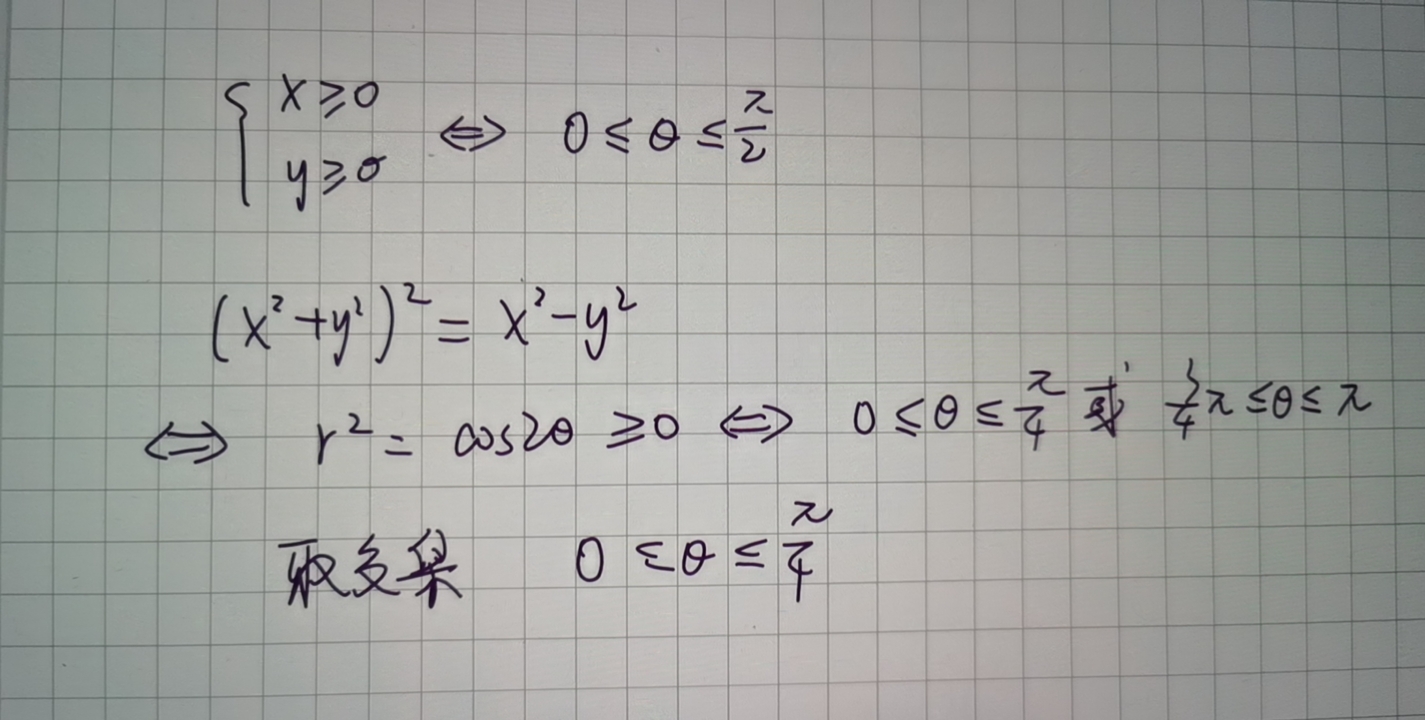 { x ≥ 0
y ≥ 0 ⇔ 0 ≤ θ ≤ π/2
(x²+y²)² = x²−y²
⇔ r² = cos2θ ≥ 0 ⇔ 0 ≤ θ ≤ π/4 或 3/4 π ≤ θ ≤ π
取交集 0 ≤ θ ≤ π/4